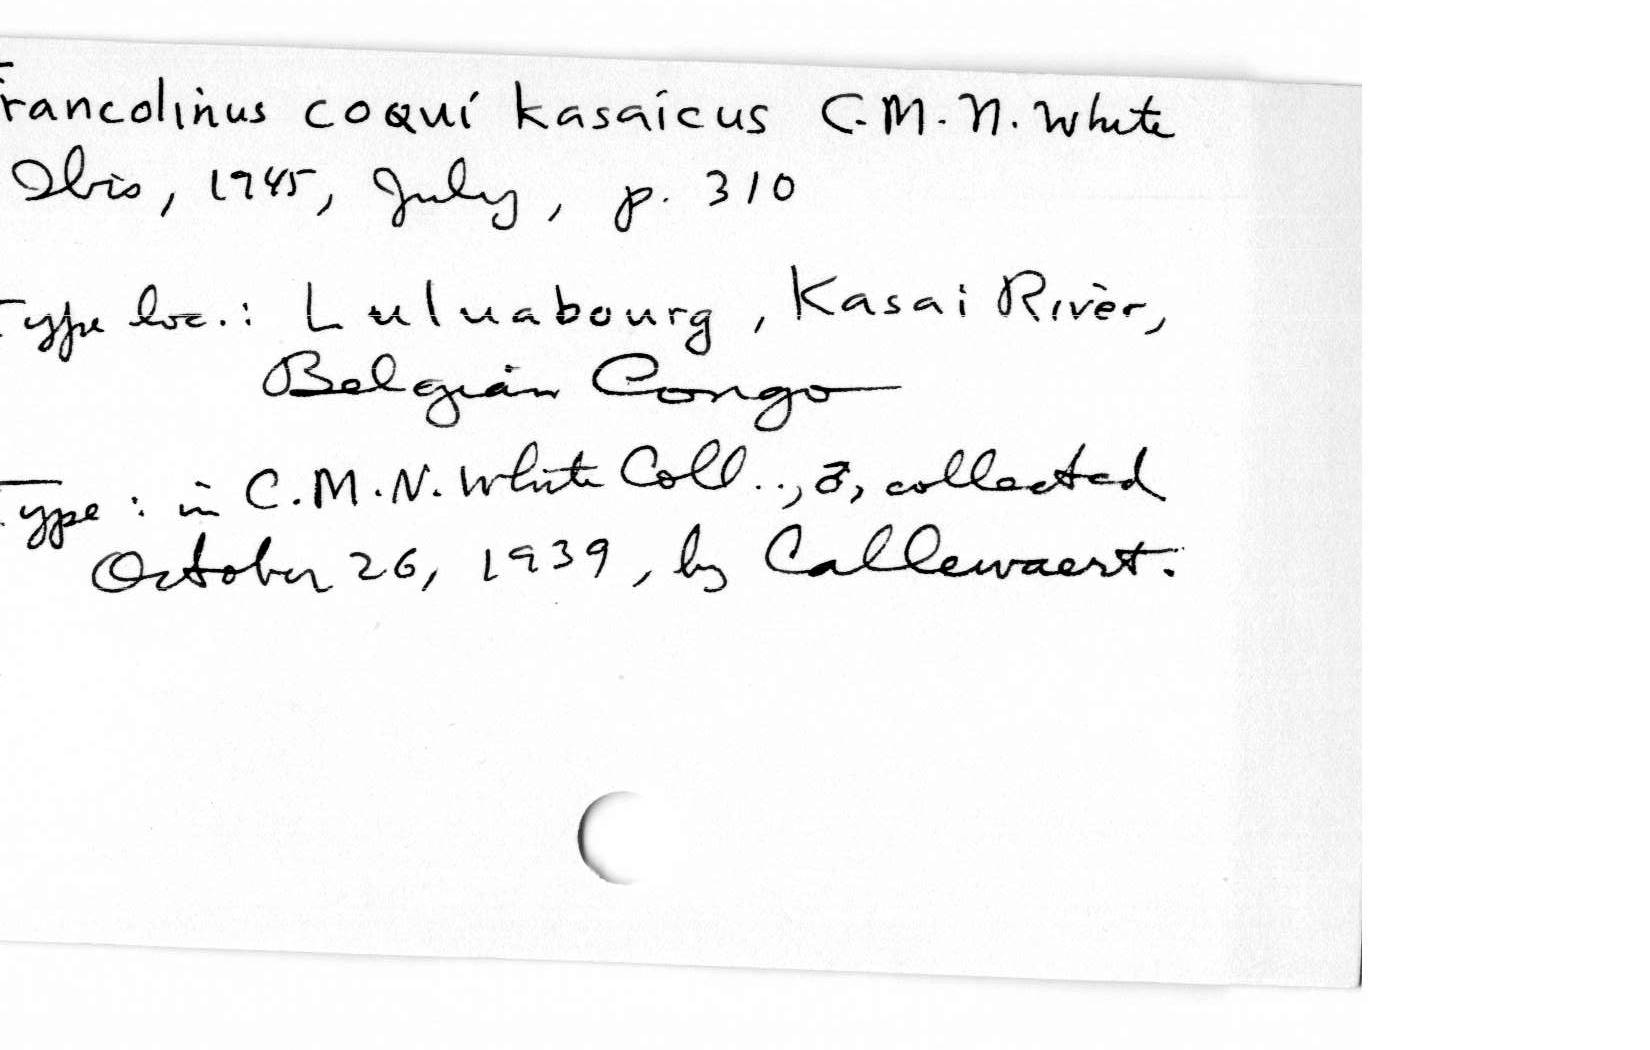 Francolinus coqui kasaicus C.M.N. White
Ibis, 1945, July, p. 310
Type loc.: Luluabourg, Kasai River,
Belgian Congo
Type: in C.M.N. White Coll.., ♂, collected
October 26, 1939, by Callewaert.